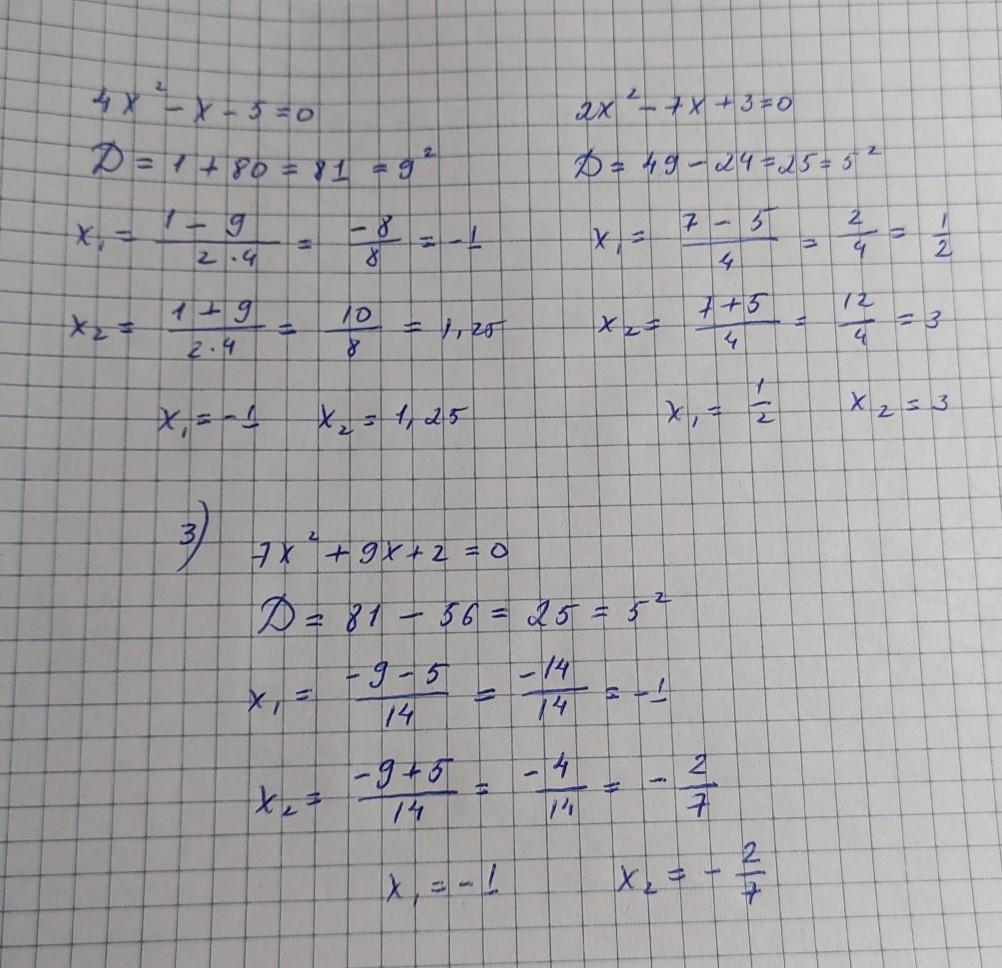 4x² - x - 5 = 0
D = 1 + 80 = 81 = 9²
x₁ = (1 - 9)/(2 · 4) = -8/8 = -1
x₂ = (1 + 9)/(2 · 4) = 10/8 = 1,25
x₁ = -1 x₂ = 1,25
2x² - 7x + 3 = 0
D = 49 - 24 = 25 = 5²
x₁ = (7 - 5)/4 = 2/4 = 1/2
x₂ = (7 + 5)/4 = 12/4 = 3
x₁ = 1/2 x₂ = 3
3) 7x² + 9x + 2 = 0
D = 81 - 56 = 25 = 5²
x₁ = (-9 - 5)/14 = -14/14 = -1
x₂ = (-9 + 5)/14 = -4/14 = -2/7
x₁ = -1 x₂ = -2/7